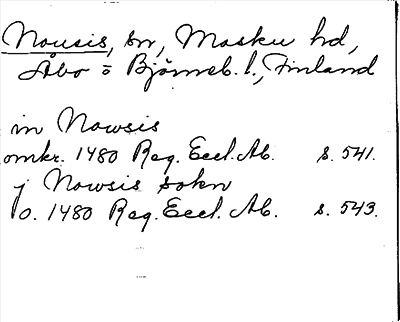 Nousis, sn, Masku hd,
Åbo o Björneb. l., Finland
in Nowsis
omkr. 1480 Reg. Eccl. Ab. s. 541.
j Nowsis sokn
o. 1480 Reg. Eccl. Ab. s. 543.